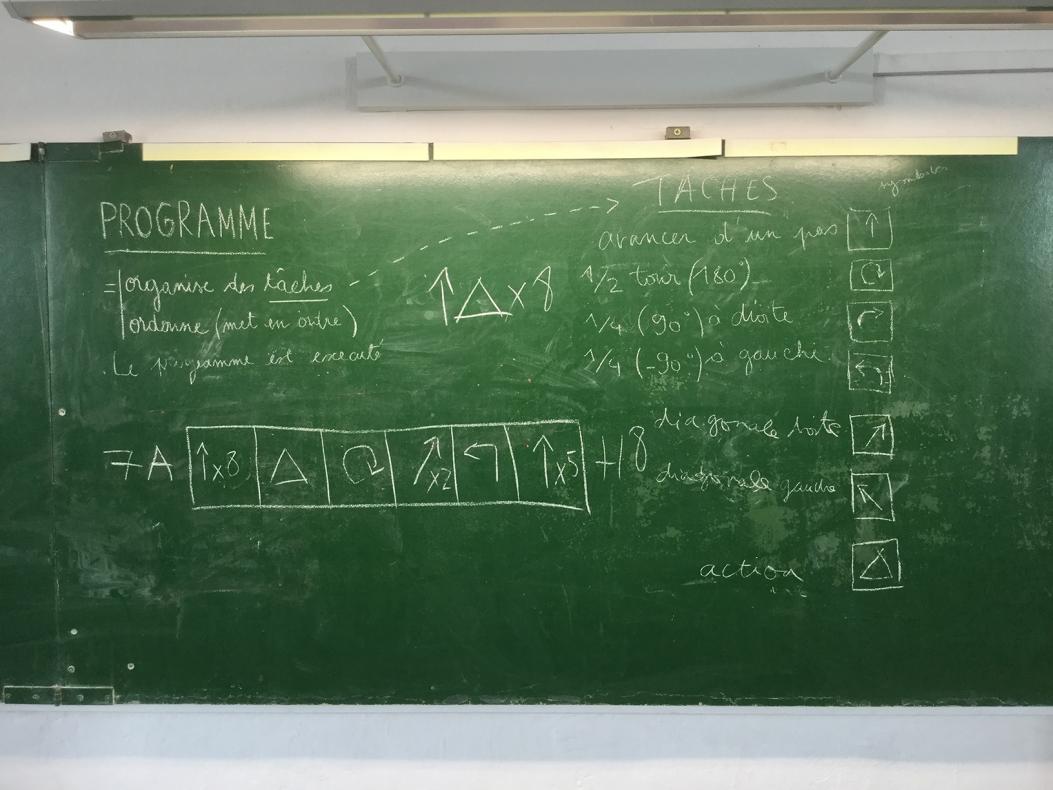 PROGRAMME
= organise des tâches
ordonne (met en ordre)
. Le programme est executé
↑ △ x 8
7A ↑x8 △ ↻ ↗x2 ↰ ↑x5 H8
TÂCHES
symboles
avancer d'un pas ↑
1/2 tour (180°) ↻
1/4 (90°) à droite ↱
1/4 (-90°) à gauche ↰
diagonale droite ↗
diagonale gauche ↖
action △